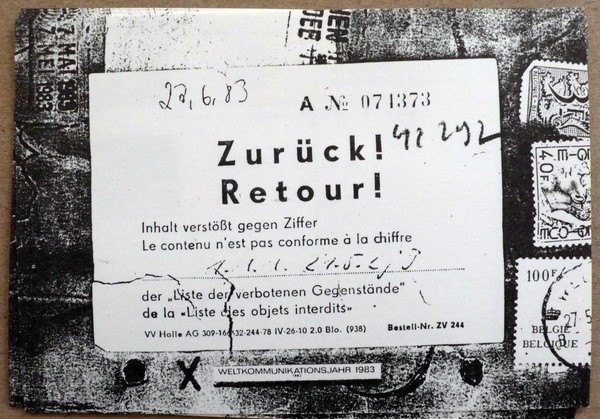 7. MAI 1983
27.6.83
A № 074373
Zurück!
Retour!
Inhalt verstößt gegen Ziffer
Le contenu n'est pas conforme à la chiffre
der „Liste der verbotenen Gegenstände“
de la «Liste des objets interdits»
VV Halle AG 309-166/32-244-78 IV-26-10 2.0 Blo. (938) Bestell-Nr. ZV 244
X WELTKOMMUNIKATIONSJAHR 1983
40F
100F
BELGIË
BELGIQUE